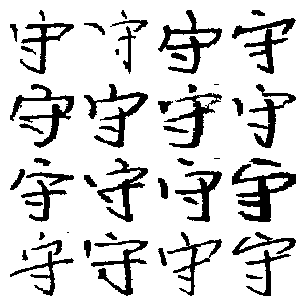 守守守守
守守守守
守守守守
守守守守